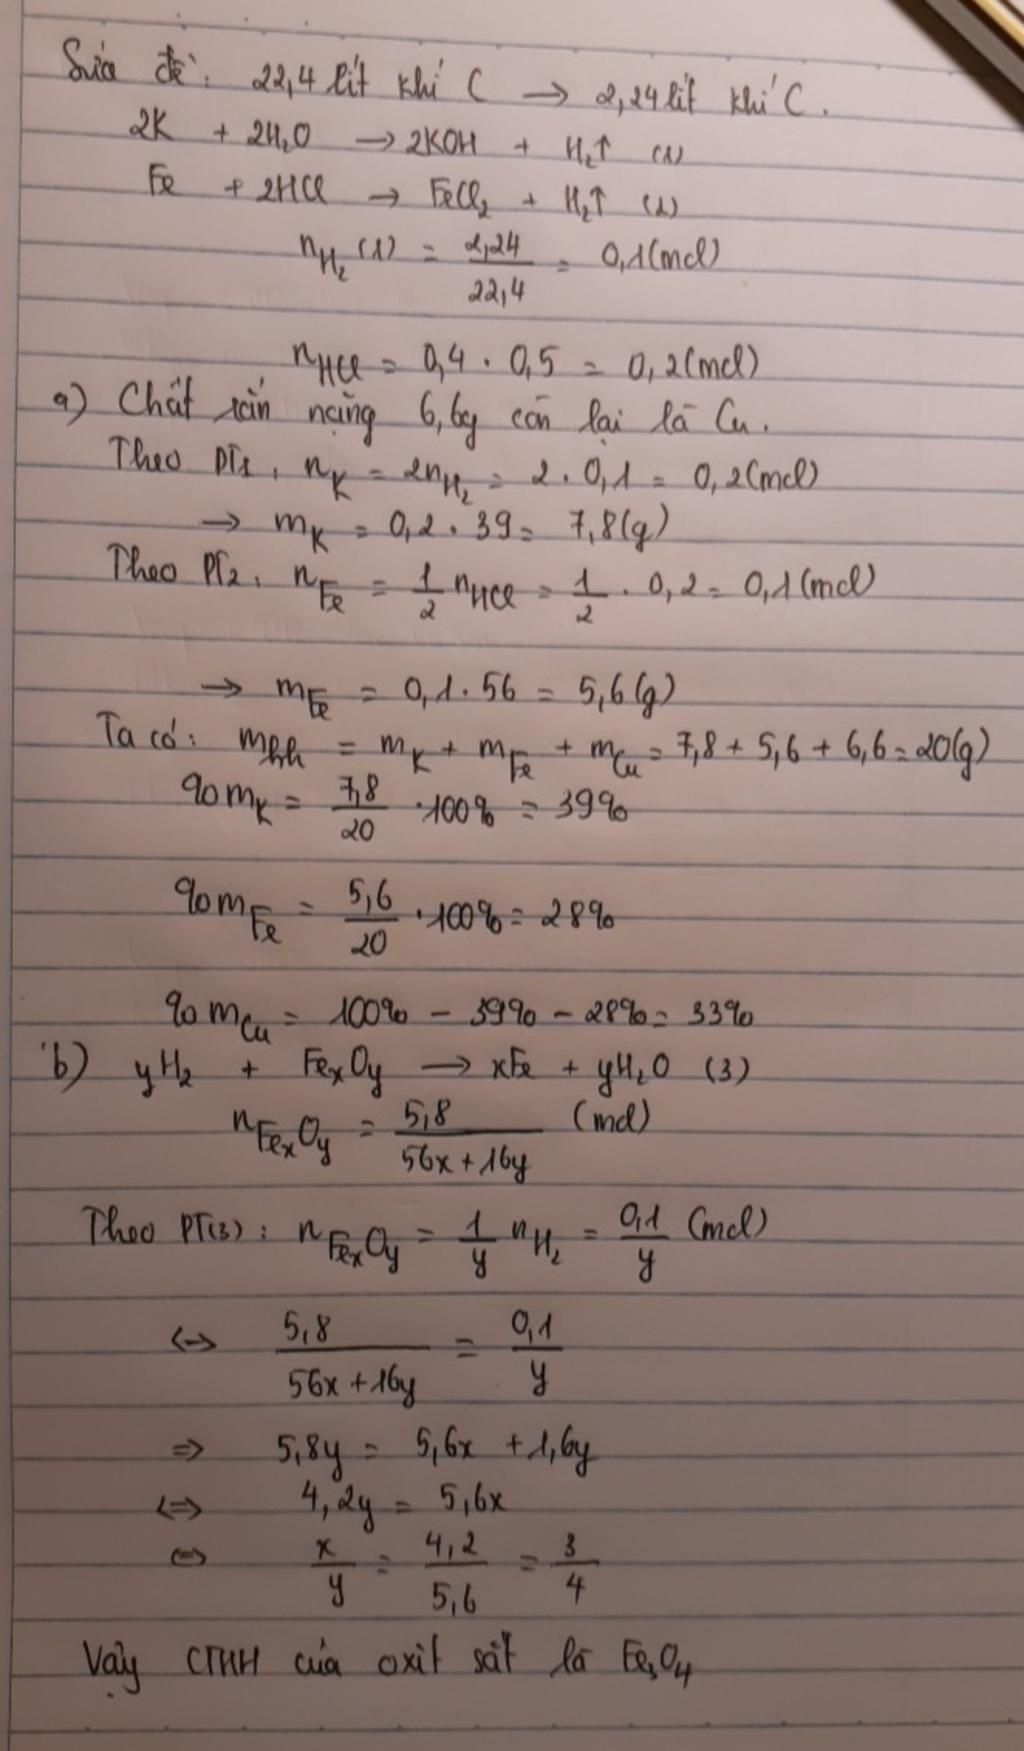 Sửa đề: 22,4 lít khí C → 2,24 lít khí C.
2K + 2H₂O → 2KOH + H₂↑ (1)
Fe + 2HCl → FeCl₂ + H₂↑ (2)
n_H₂ (1) = 2,24/22,4 = 0,1 (mol)
n_HCl = 0,4 . 0,5 = 0,2 (mol)
a) Chất rắn nặng 6,6g còn lại là Cu.
Theo PT1, n_K = 2n_H₂ = 2 . 0,1 = 0,2 (mol)
→ m_K = 0,2 . 39 = 7,8 (g)
Theo PT2, n_Fe = 1/2 n_HCl = 1/2 . 0,2 = 0,1 (mol)
→ m_Fe = 0,1 . 56 = 5,6 (g)
Ta có: m_hh = m_K + m_Fe + m_Cu = 7,8 + 5,6 + 6,6 = 20 (g)
%m_K = 7,8/20 . 100% = 39%
%m_Fe = 5,6/20 . 100% = 28%
%m_Cu = 100% - 39% - 28% = 33%
b) yH₂ + FexOy → xFe + yH₂O (3)
n_FexOy = 5,8/(56x + 16y) (mol)
Theo PT(3): n_FexOy = 1/y n_H₂ = 0,1/y (mol)
<-> 5,8/(56x + 16y) = 0,1/y
=> 5,8y = 5,6x + 1,6y
<=> 4,2y = 5,6x
<=> x/y = 4,2/5,6 = 3/4
Vậy CTHH của oxit sắt là Fe₃O₄